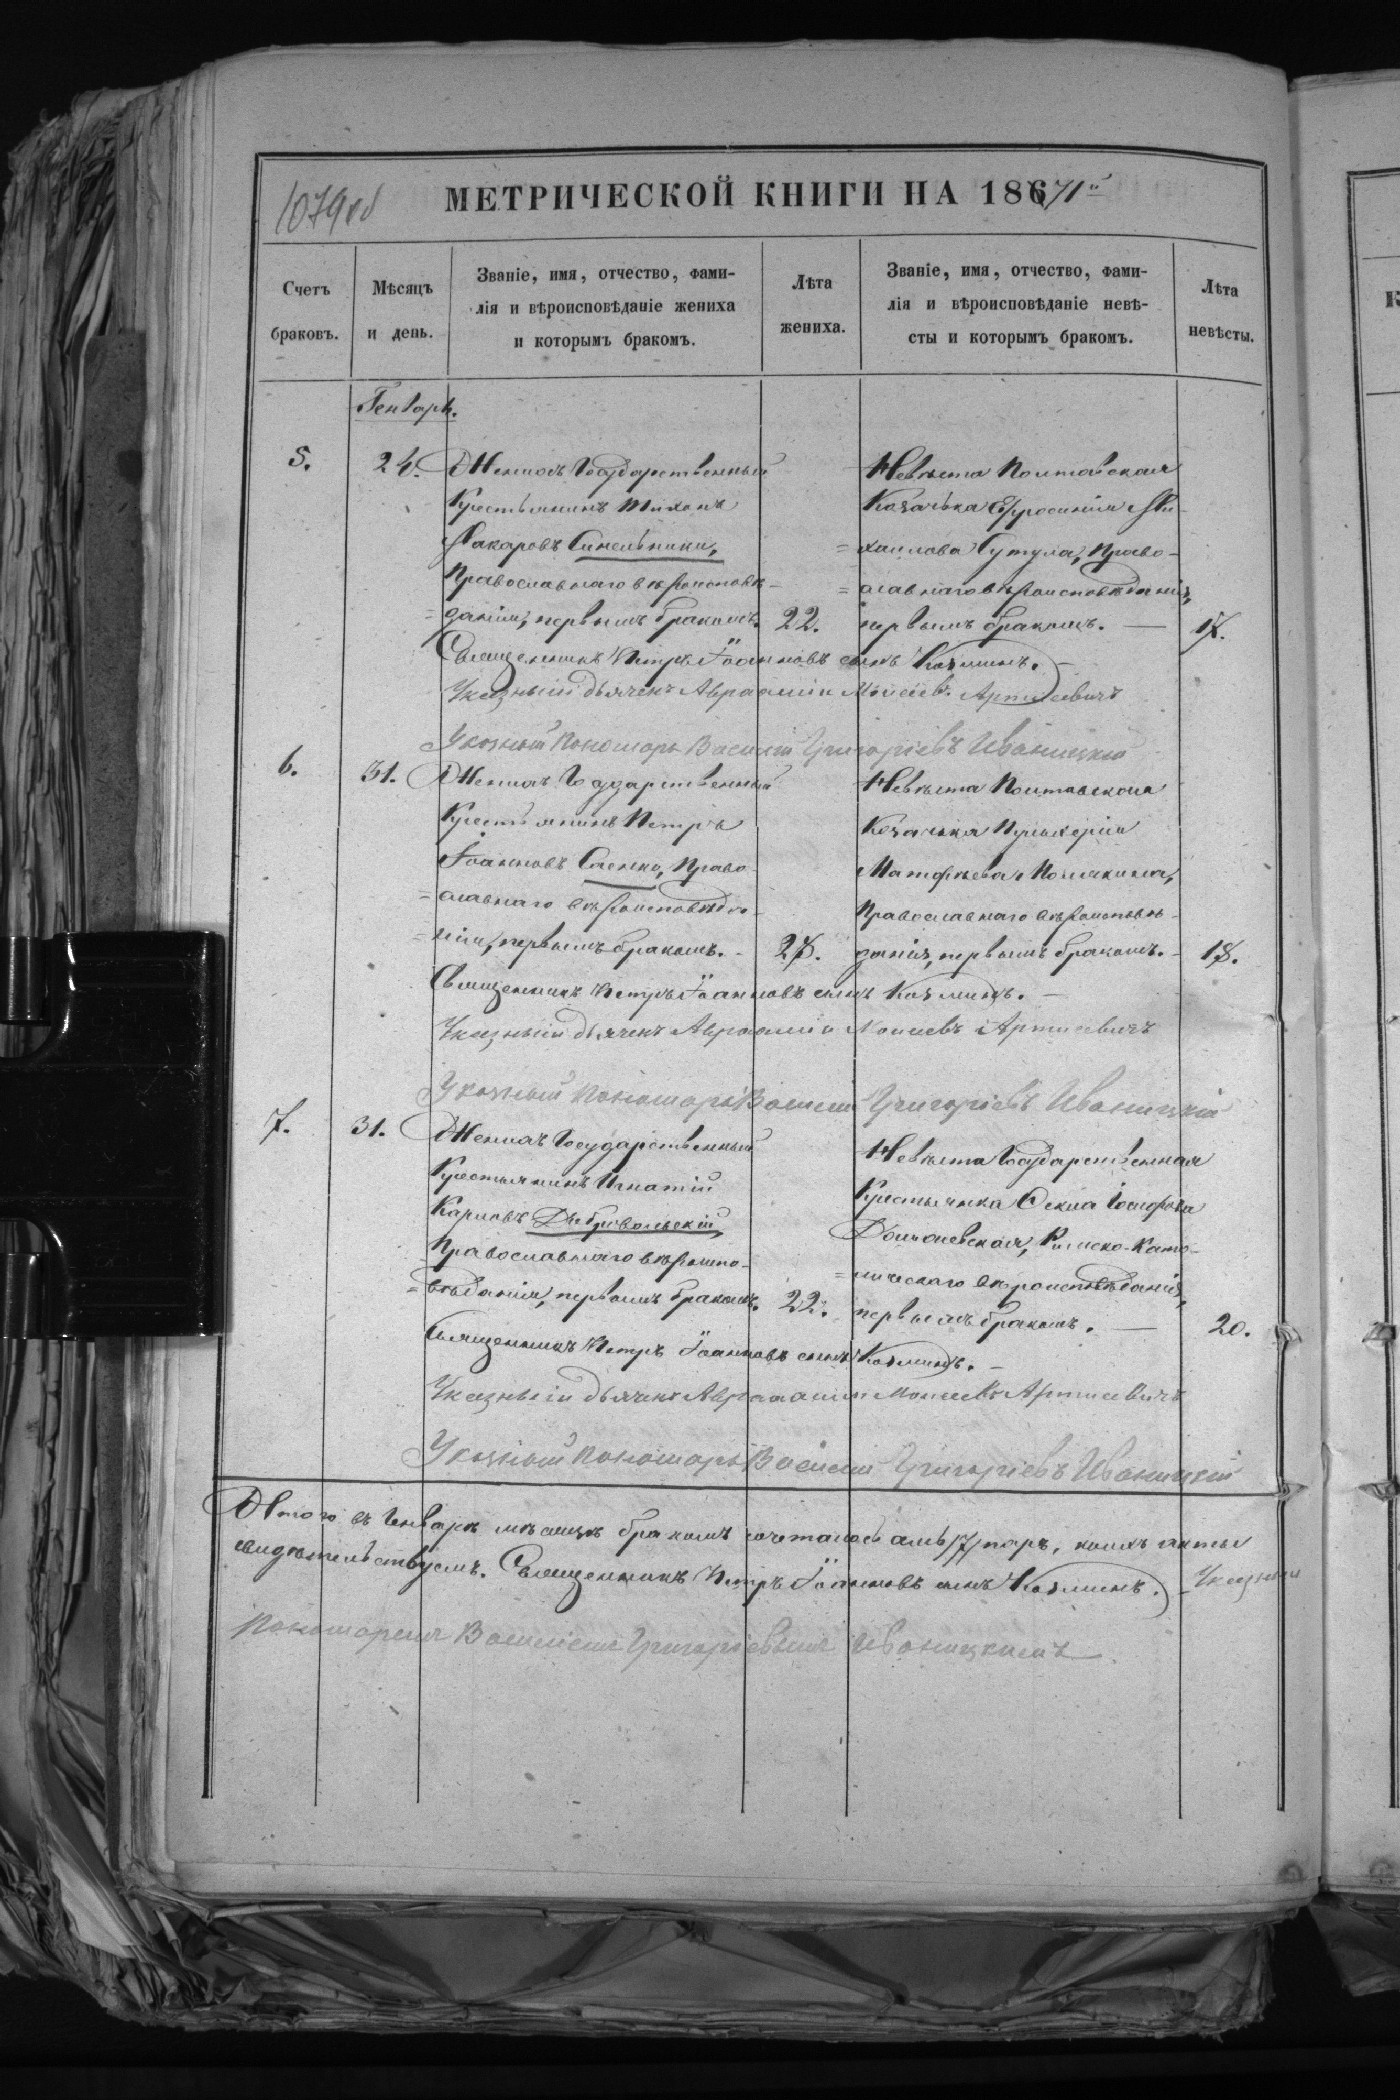 1079об
МЕТРИЧЕСКОЙ КНИГИ НА 1871й
Счетъ браковъ.
Мѣсяцъ и день.
Званіе, имя, отчество, фами-
лія и вѣроисповѣданіе жениха
и которымъ бракомъ.
Лѣта жениха.
Званіе, имя, отчество, фами-
лія и вѣроисповѣданіе невѣ-
сты и которымъ бракомъ.
Лѣта невѣсты.
Генварь.
5.
24.
Женихъ Государственный
Крестьянинъ Тихонъ
Макаровъ Синельники,
Православнаго вѣроисповѣ-
=данія, первымъ бракомъ.
22.
Невѣста Полтавская
Козачька Ефросинія Ми-
=хаилова Гутула, Право-
=славнаго вѣроисповѣданія,
первымъ бракомъ. —
Священникъ Петръ Іоанновъ сынъ Козминъ. —
Указный дьячекъ Авраамій Моисеевъ Артисевичъ
Указный Пономарь Василій Григоріевъ Иваницкій
6.
31.
Женихъ Государственный
Крестьянинъ Петръ
Іоанновъ Саенко, Право-
=славнаго вѣроисповѣда-
=нія, первымъ бракомъ. -
Невѣста Полтавская
Козачька Пульхерія
Матфѣева
Православнаго вѣроисповѣ-
данія, первымъ бракомъ. -
18.
Священникъ Петръ Іоанновъ сынъ Козминъ. —
Указный дьячекъ Авраамій Моисеевъ Артисевичъ
Указный Пономарь Василій Григоріевъ Иваницкій
7.
31.
Женихъ Государственный
Крестьянинъ Игнатій
Карповъ Добровольскій,
Православнаго вѣроиспо-
=вѣданія, первымъ бракомъ.
22.
Невѣста Государственная
Крестьянка Іосифова
Римско-Като-
=лическаго вѣроисповѣданія,
первымъ бракомъ. —
20.
Священникъ Петръ Іоанновъ сынъ Козминъ. —
Указный дьячекъ Авраамій Моисеевъ Артисевичъ
Указный Пономарь Василій Григоріевъ Иваницкій
Итого въ Генварѣ мѣсяцѣ бракомъ сочеталось /7/ паръ, коихъ акты
свидѣтельствуемъ. Священникъ Петръ Іоанновъ сынъ Козминъ. Указный
Пономаремъ Василіемъ Григоріевымъ Иваницкимъ